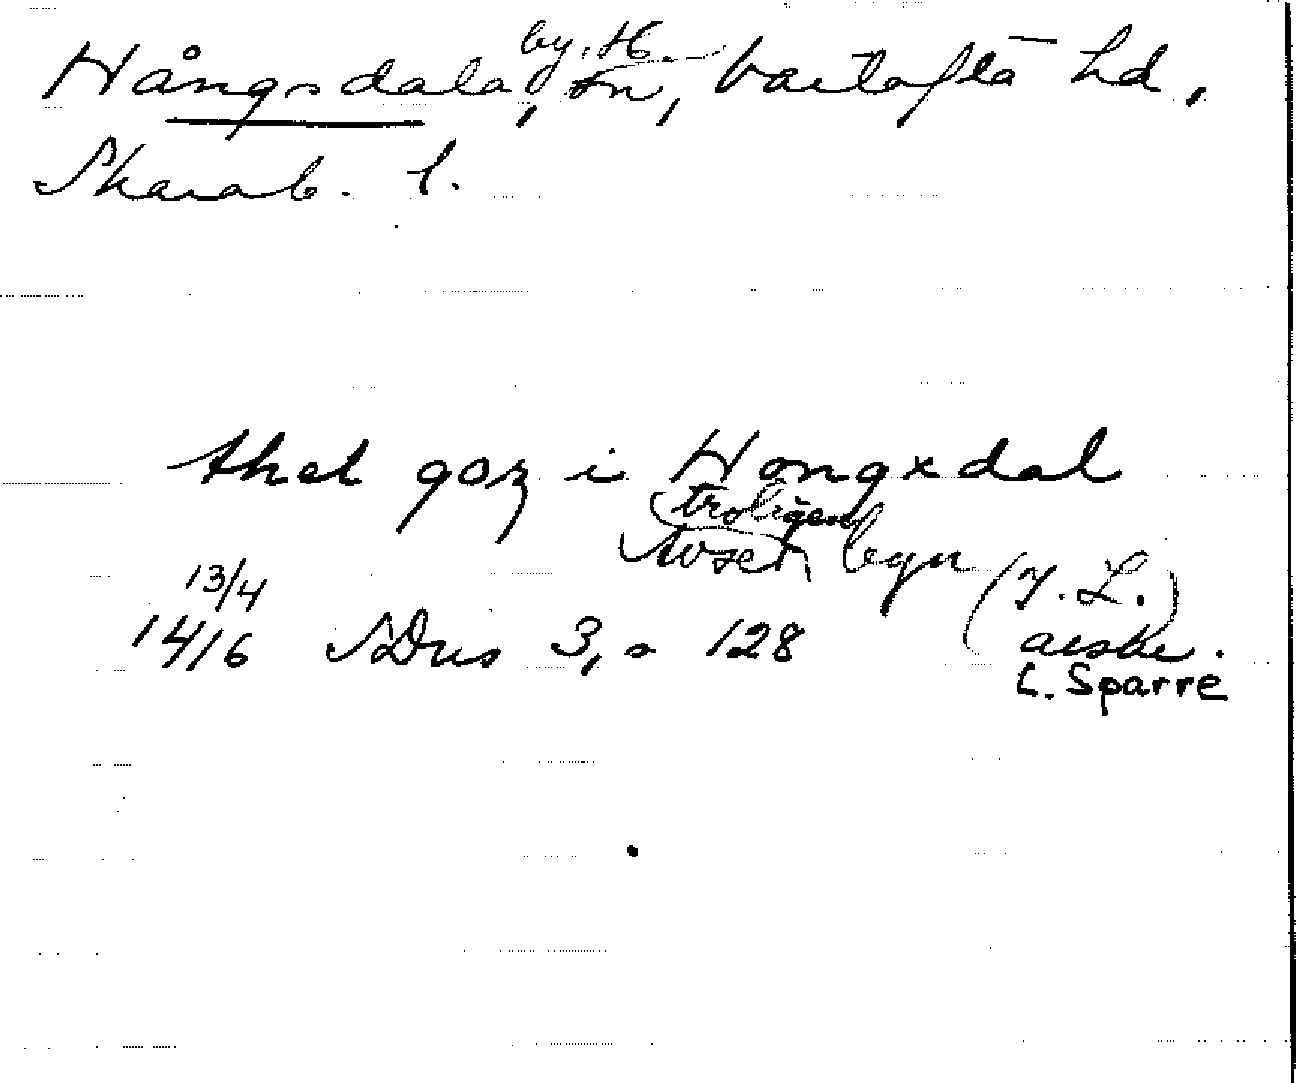 Hångsdala, by, H. sn, Vartofta hd,
Skarab. l.
thet goz i Hongxdal
(troligen
Avser byn (I. L.)
13/4
1416 SDns 3, s 128 aeske.
L. Sparre